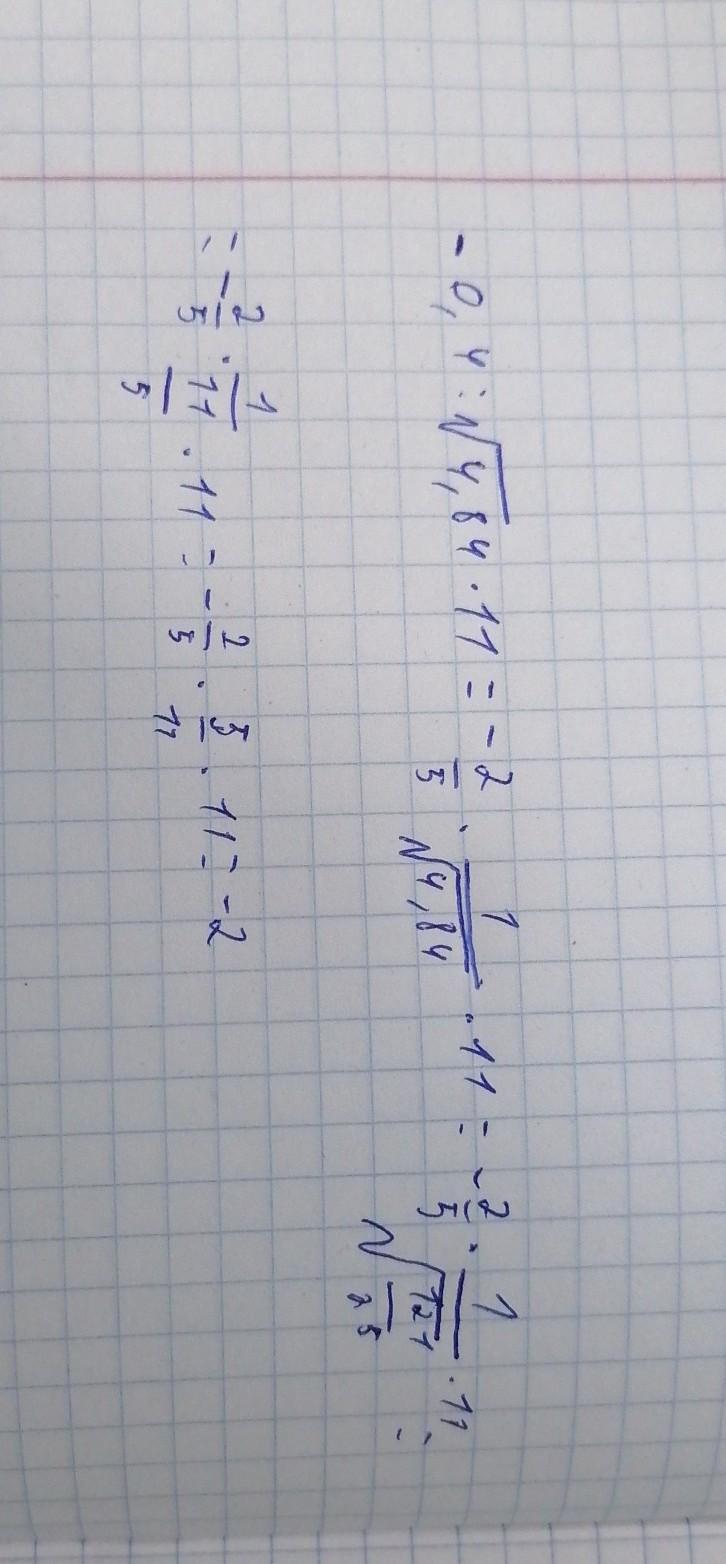 - 0,4 : √4,84 · 11 = - 2/5 · 1/√4,84 · 11 = - 2/5 · 1/√(121/25) · 11 =
= - 2/5 · 1/(11/5) · 11 = - 2/5 · 5/11 · 11 = -2